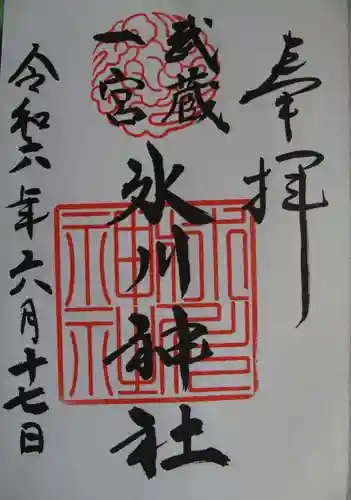 奉拝
武蔵
一宮
氷川神社
令和六年六月十七日
氷川神社